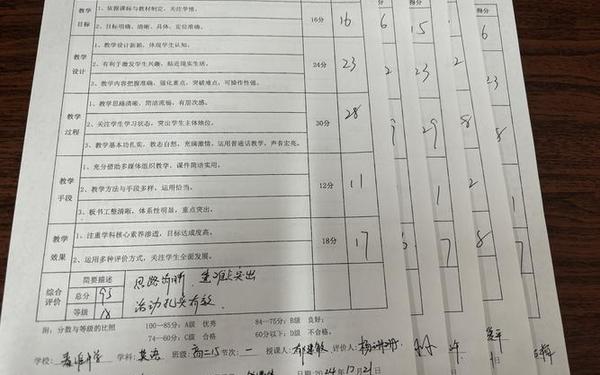 教学
目标
1、依据课标与教材制定，关注学情。
2、目标明确、清晰、具体，定位准确。
16分 16 6 15 6
教学
设计
1、教学设计新颖，体现学生认知。
2、有利于激发学生兴趣，贴近现实生活。
3、教学内容把握准确，强化重点，突破难点，可操作性强。
24分 23 2 23 2 23
教学
过程
1、教学思路清晰，简洁流畅，有层次感。
2、关注学生学习状态，突出学生主体地位。
3、教学基本功扎实，教态自然，充满激情，运用普通话教学，声音宏亮。
30分 28 9 29 8 8
教学
手段
1、充分借助多媒体组织教学，课件简洁实用。
2、教学方法与手段多样，运用恰当。
3、板书工整清晰，体系性明显，重点突出。
12分 11 1 2
教学
效果
1、注重学科核心素养渗透，目标达成度高。
2、运用多种评价方式，关注学生全面发展。
18分 17 6 7 8 7
综合
评价
简要描述
总分 95
等级
思路清晰 重难点突出
活动扎实有效
附：分数与等级的比照 100—85分：A级 优秀 84—75分：B级 良好；
74—60分：C级 合格 60分以下：D级 不合格。
学校： 学科：英语 班级：高二15 节次：一 授课人： 评价人：
日期：2024年12月21